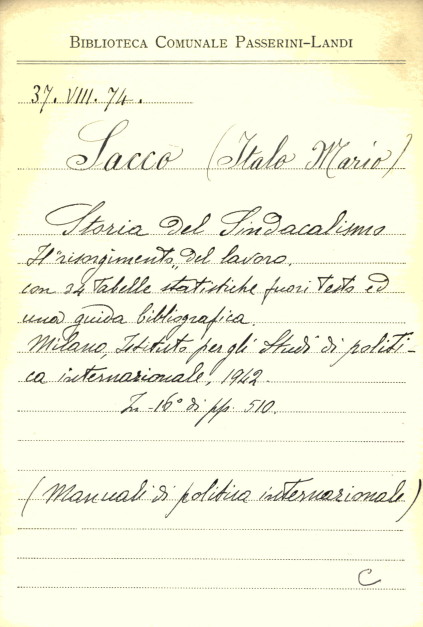 BIBLIOTECA COMUNALE PASSERINI-LANDI
37. VIII. 74.
Sacco (Italo Mario)
Storia del Sindacalismo
Il "risorgimento" del lavoro.
con 24 tabelle statistiche fuori testo ed
una guida bibliografica.
Milano, Istituto per gli Studi di politi-
ca internazionale, 1942.
In-16° di pp. 510.
(Manuali di politica internazionale)
C